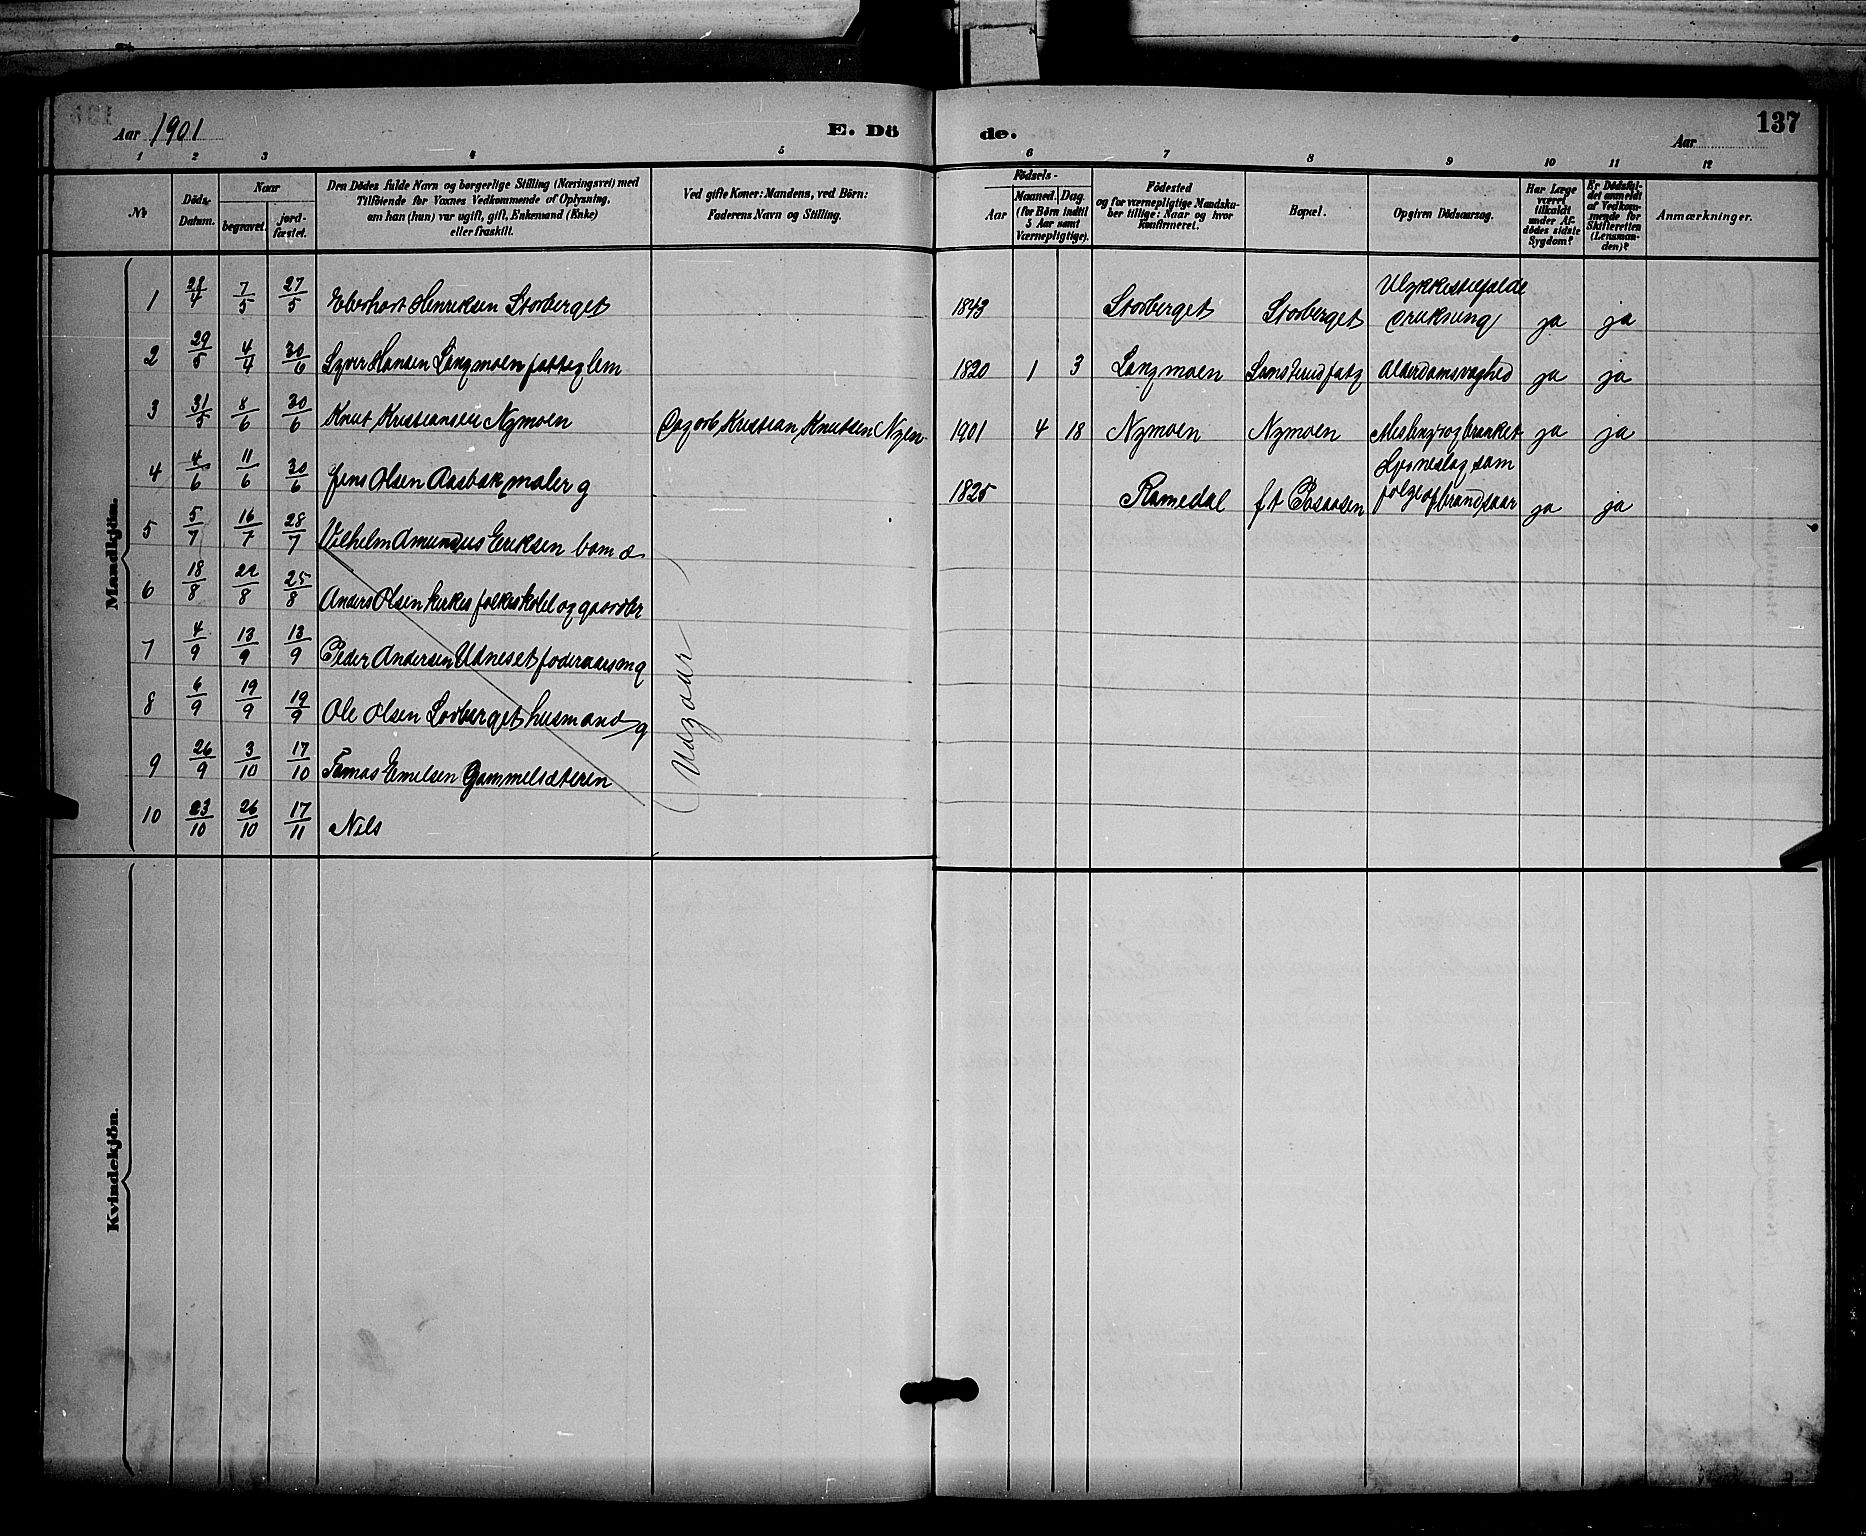 Aar 1901
E. Dö
de.
Aar
137
1 2 3 4 5 6 7 8 9 10 11 12
No
Döds-Datum.
Naar
begravet.
jordfæstet.
Den Dödes fulde Navn og borgerlige Stilling (Næringsvei) med
Tilföiende for Voxnes Vedkommende af Oplysning,
om han (hun) var ugift, gift, Enkemand (Enke)
eller fraskilt.
Ved gifte Koner: Mandens, ved Börn:
Faderens Navn og Stilling.
Födsels-
Aar
Maaned. Dag.
(for Börn indtil
5 Aar samt
Værnepligtige).
Födested
og for værnepligtige Mandskaber tillige: Naar og hvor
konfirmeret.
Bopæl.
Opgiven Dödsaarsag.
Har Læge
været
tilkaldt
under Afdödes sidste
Sygdom?
Er Dödsfaldet anmeldt
af Vedkommende for
Skifteretten
(Lensmanden)?
Anmærkninger.
Mandkjön.
1 28/4 7/5 27/5 Eberhart Henriksen Storberget 1843 Storberget Storberget Ulykkestilfælde drukning ja ja
2 29/5 4/4 30/6 Syver Hansen Langmoen fattiglem 1820 1 3 Langmoen Alderdomsvaghed ja ja
3 31/5 8/6 30/6 Knut Kristiansen Nymoen Kristian Knutsen 1901 4 18 Nymoen Nymoen ja ja
4 4/6 11/6 30/6 Jens Olsen maler g 1825 Ramedal f t Hjerneslag som følge af brandsaar ja ja
5 5/7 16/7 28/7 Vilhelm Amundus Eriksen
6 18/8 22/8 25/8 Anders Olsen
7 4/9 13/9 13/9 Peder Andersen Udneset g
8 6/9 19/9 19/9 Ole Olsen husmand g
9 26/9 3/10 17/10 Tomas Emelsen Gammelsæteren
10 23/10 26/10 17/11 Nils
(Udgaar)
Kvindekjön.